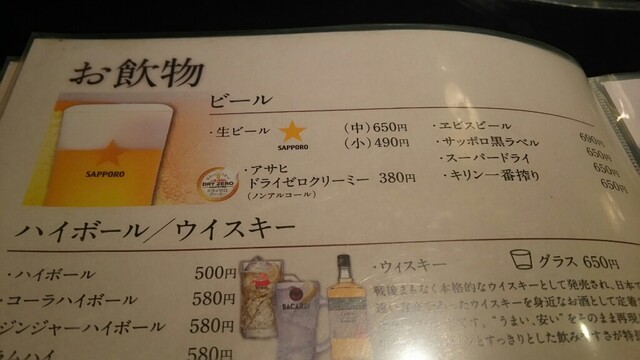 お飲物
ビール
・生ビール
SAPPORO
(中)650円
(小)490円
・アサヒ
ドライゼロクリーミー 380円
(ノンアルコール)
・ヱビスビール 690円
・サッポロ黒ラベル 650円
・スーパードライ 650円
・キリン一番搾り 650円
SAPPORO
DRY ZERO
ハイボール/ウイスキー
・ハイボール 500円
・コーラハイボール 580円
ジンジャーハイボール 580円
ラムハイ 580円
BACARDI
・ウィスキー グラス 650円
戦後まもなく本格的なウイスキーとして発売され、日本で
ウイスキーを身近なお酒として定着
です。"うまい、安い"をそのまま再現
とすっきりとした飲みやすさが特